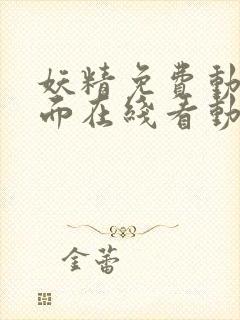 妖精免費動
而在綫看動
金蕾